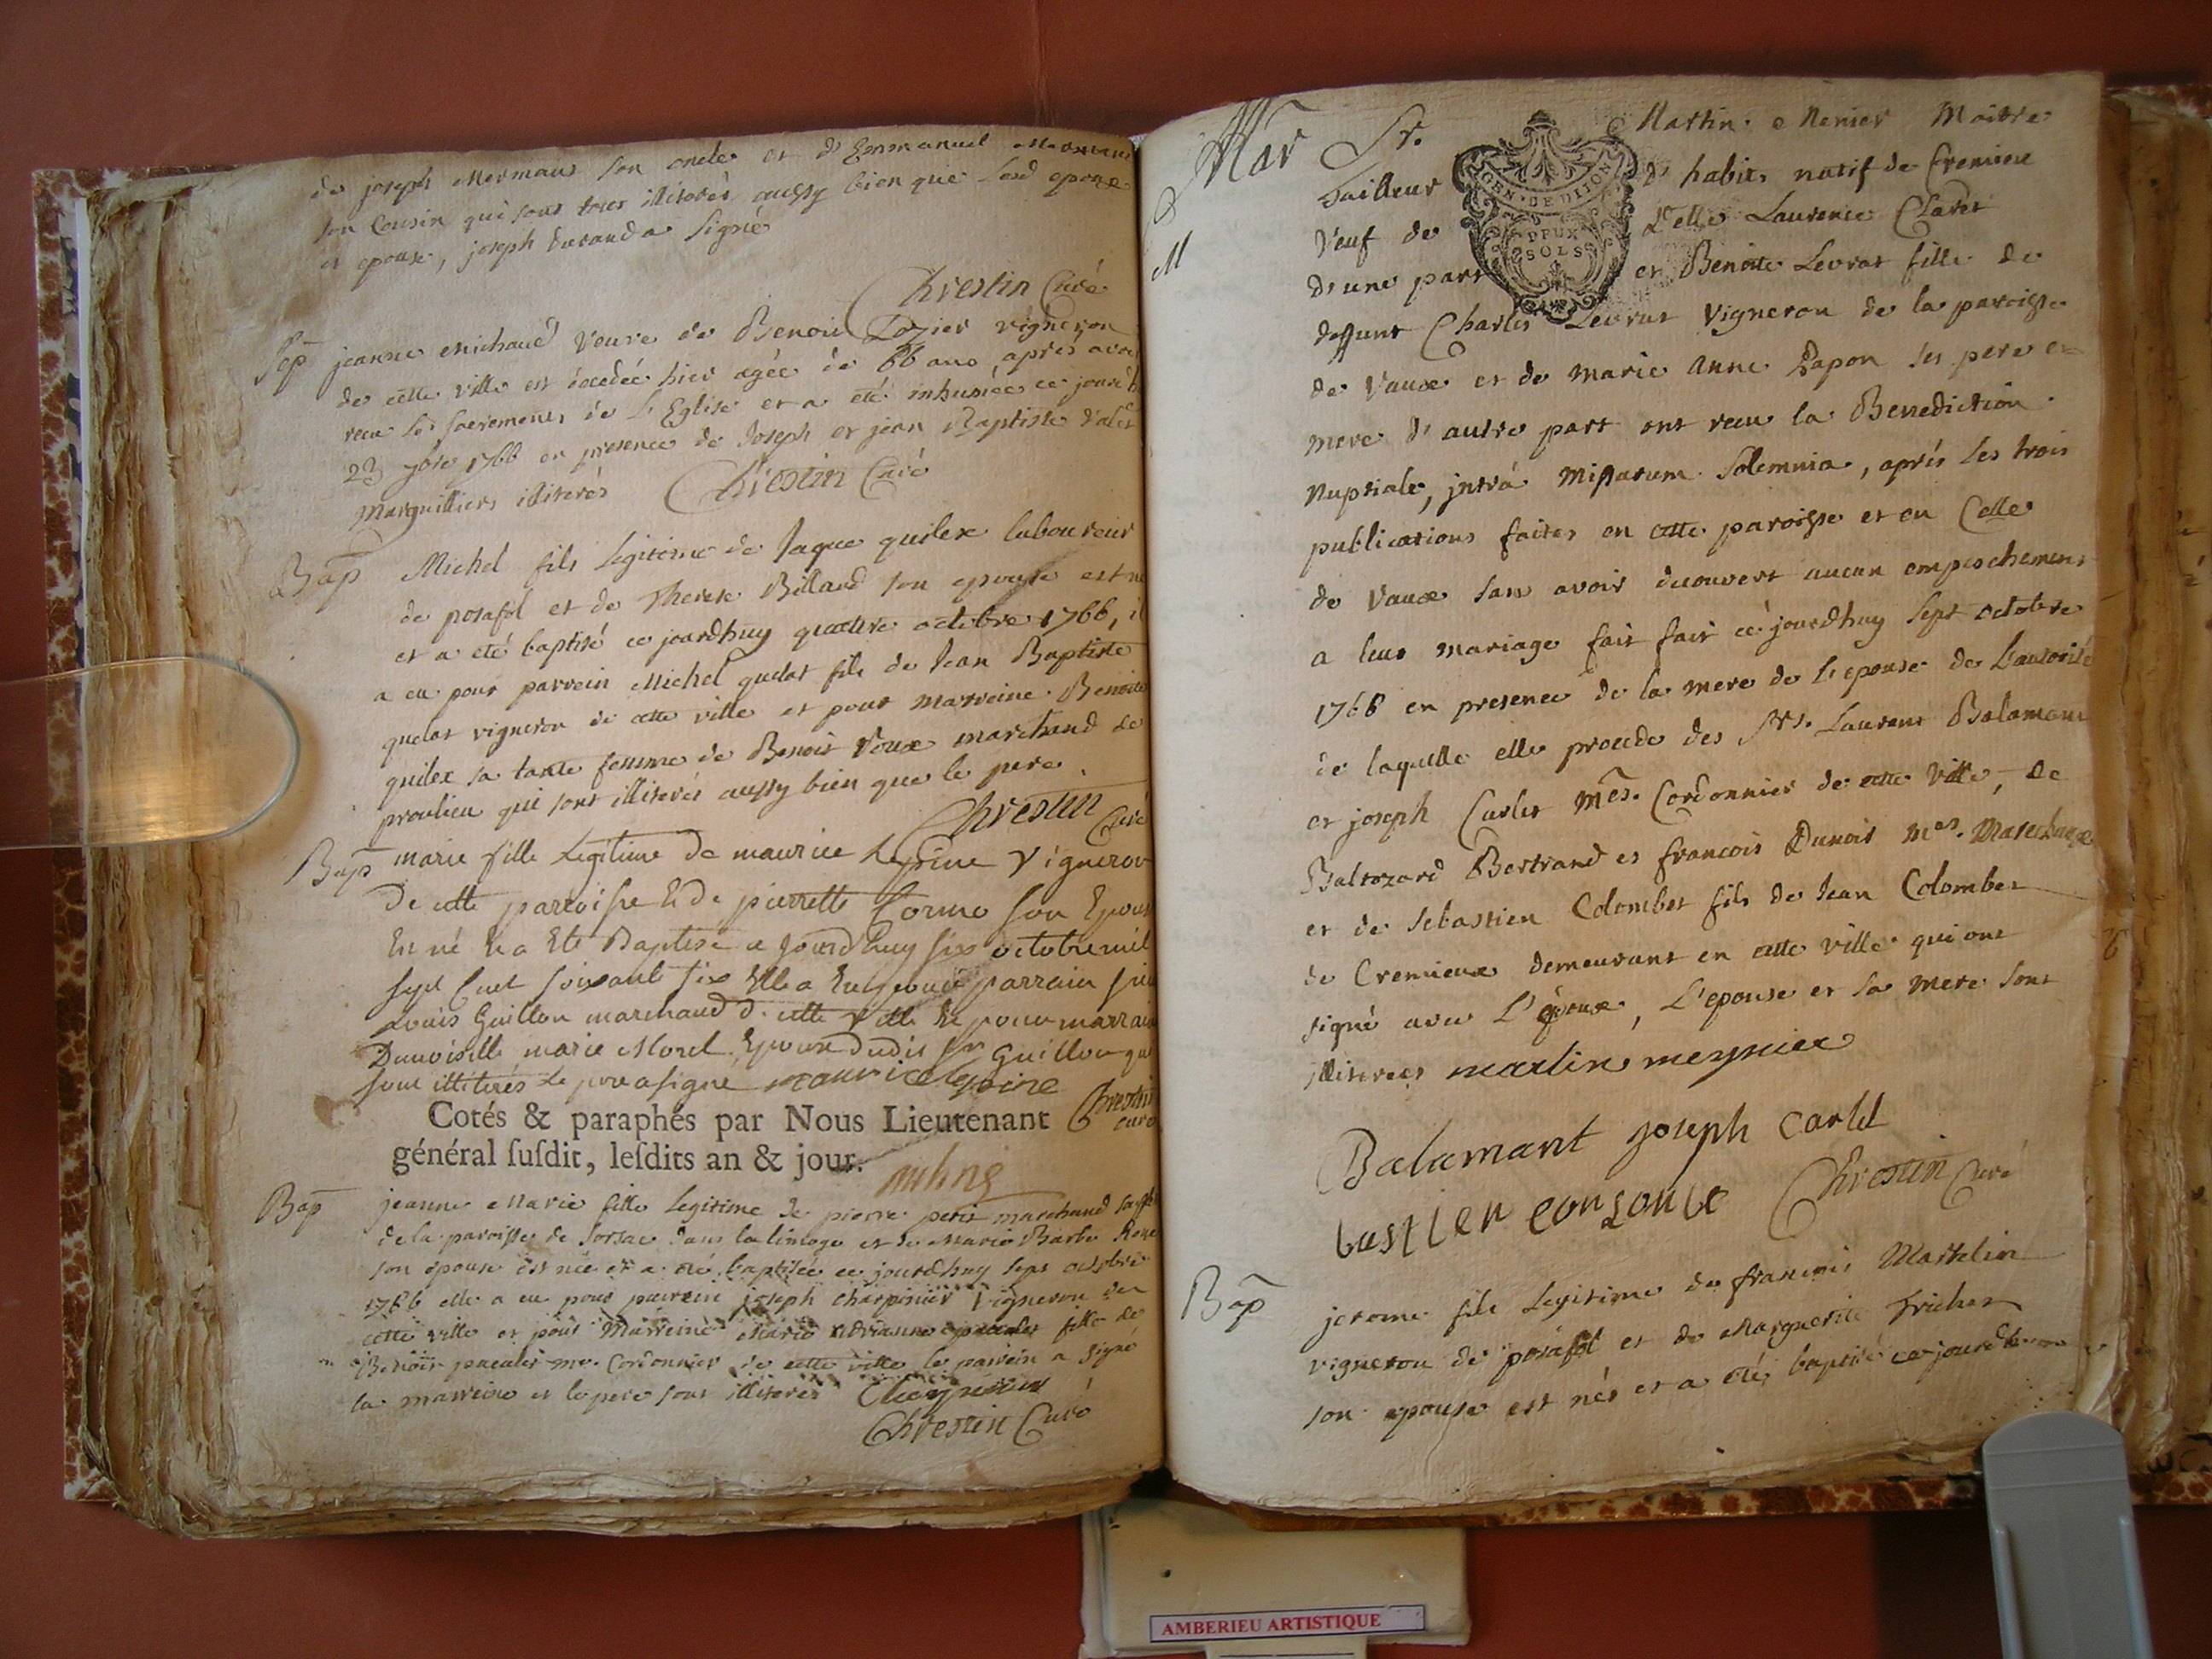 de joseph Mermand son oncle et d'Emmanuel
son Cousin qui sont tous illiterés aussy bien que Led epoux
et epouse, joseph durand a signé
Chrestin Curé
Sep jeanne Michaud Veuve de Benoit Lozier vigneron
de cette ville est decedée hier agée de 66 ans aprés avoir
recu les sacremens de L'Eglise et a eté inhumée ce jourdh
23 7bre 1766 en presence de Joseph et jean Baptiste
Marguilliers illiterés Chrestin Curé
Bap Michel fils Legitime de Jaque quilex laboureur
de posafol et de Therese Billard son epouse est né
et a eté baptisé ce jourdhuy quatre octobre 1766, il
a eu pour parrein Michel quelat fils de Jean Baptiste
quelat vigneron de cette ville et pour Marreine Benoite
quilex sa tante femme de Benoit Voux marchand de
proulieu qui sont illiterés aussy bien que le pere
Chrestin Curé
Bap marie fille Legitime de maurice Lepine Vigneron
De cette parroisse & de pierrette Cormo son Epouse
Est né & a Eté Baptisé ce Jourdhuy six octobre mil
sept Cent soixante six Elle a Eu pour parrain sieur
Louis Guillon marchand de cette Ville & pour marraine
Demoiselle marie Morel Epouse dudit sr Guillon qui
sont illiterés Le pere a signé maurice lepine
Chrestin curé
Cotés & paraphés par Nous Lieutenant
général susdit, lesdits an & jour.
Bap jeanne Marie fille Legitime de pierre petit marchand
de la paroisse de Sorsac dans la limoge et de Marie Barbe
son epouse est née et a eté baptisée ce jourdhuy sept octobre
1766 elle a eu pour parrein joseph charpinier Vigneron de
cette ville et pour Marreine Marie Adrianne fille de
Benoit me. Cordonnier de cette ville le parrein a signé
la marreine et le pere sont illiterés
Chrestin Curé
Mar Sr. Martin Menier Maitre
M
Tailleur d'habits natif de Cremieu
Veuf de Delle Laurence Claret
GEN. DE DIJON
DEUX
SOLS
d'une part et Benoite Levrat fille de
deffunt Charles Levrat Vigneron de la paroisse
de Vaux et de marie anne Papon ses pere et
mere d'autre part ont recu la Benediction
Nuptiale, jntrá Missarum Solemnia, aprés les trois
publications faites en cette paroisse et en Celle
de Vaux sans avoir decouvert aucun empeschement
a leur mariage fait fait ce jourdhuy sept octobre
1766 en presence de la mere de L'epouse de L'autorité
de laquelle elle procede des Srs. Laurent Balamant
et joseph Carlet mes. Cordonnier de cette Ville, de
Baltazard Bertrand et francois Dunoir mes. Marechaux
et de Sebastien Colombet fils de Jean Colombet
de Cremieux demeurant en cette ville qui ont
signé avec L'epoux, L'epouse et sa Mere sont
jlliterées martin meynier
Balamant joseph carlet
bastien Chrestin Curé
Bap jerome fils Legitime de francois Martelin
vigneron de posafol et de Marguerite Trichet
son epouse est nés et a eté baptisé ce jourdhuy
AMBERIEU ARTISTIQUE